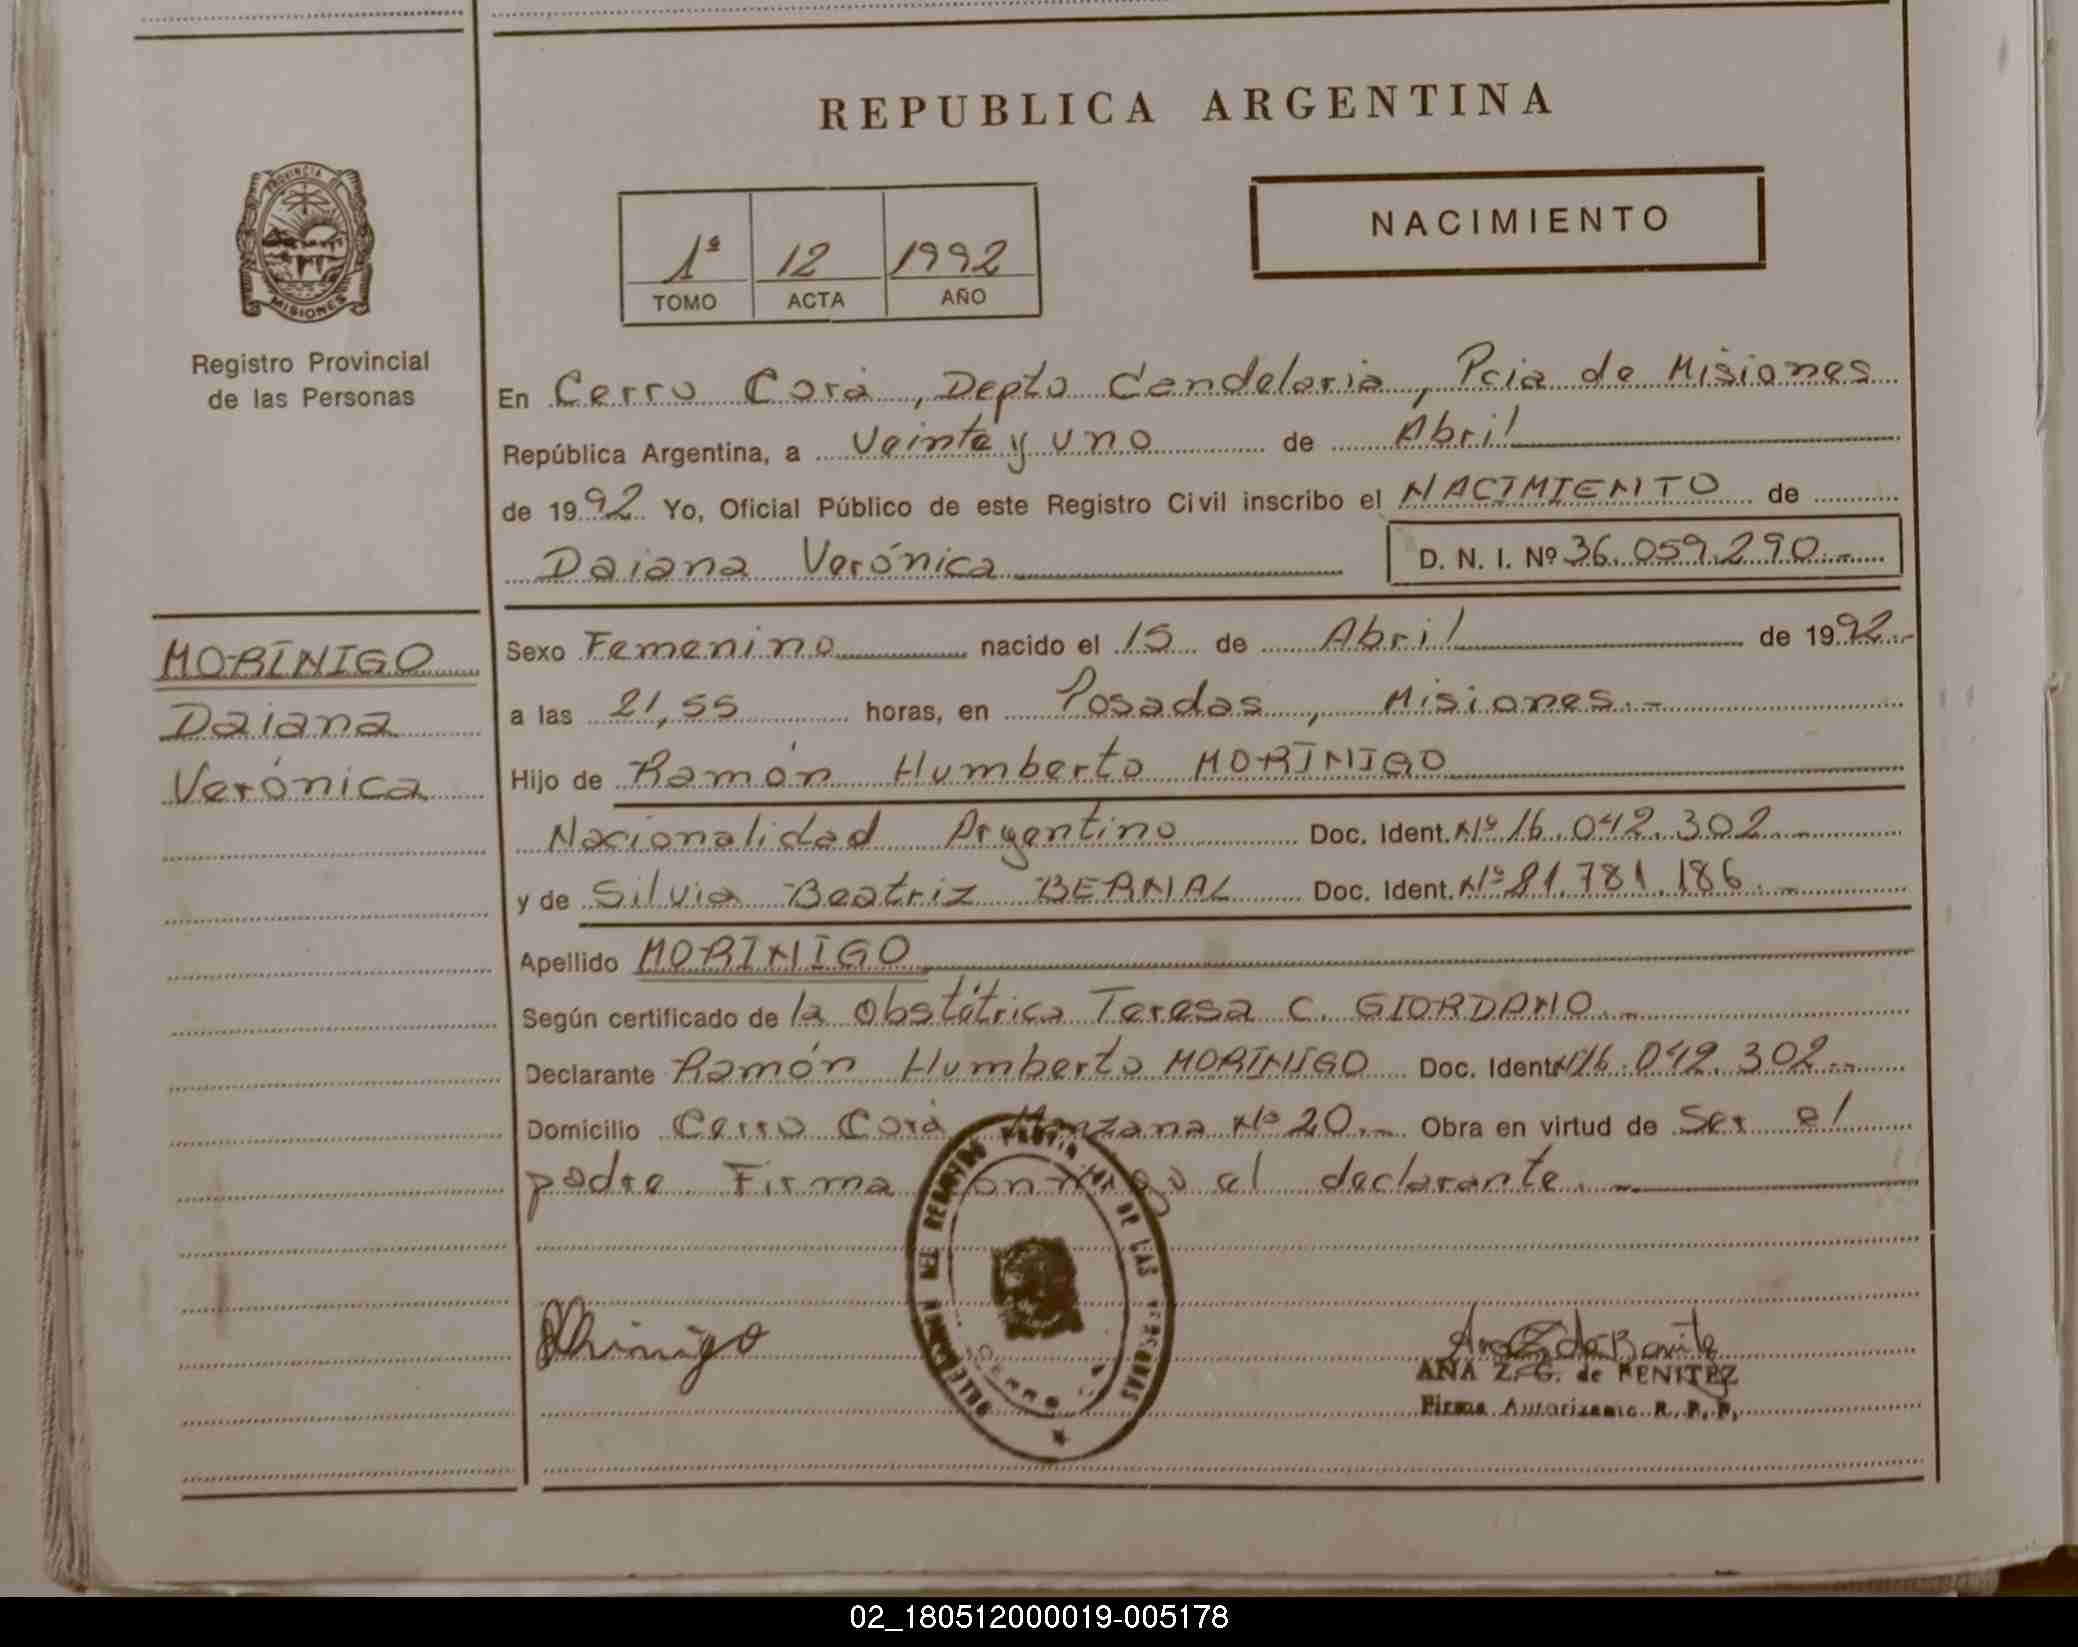 REPUBLICA ARGENTINA
PROVINCIA DE
MISIONES
Registro Provincial
de las Personas
1º 12 1992
TOMO ACTA AÑO
NACIMIENTO
En Cerro Corá, Depto Candelaria, Pcia de Misiones
República Argentina, a Veinte y uno de Abril
de 1992 Yo, Oficial Público de este Registro Civil inscribo el NACIMIENTO de
Daiana Verónica D. N. I. Nº 36.059.290.-
MORÍNIGO
Daiana
Verónica
Sexo Femenino nacido el 15 de Abril de 1992.-
a las 21,55 horas, en Posadas, Misiones.-
Hijo de Ramón Humberto MORÍNIGO
Nacionalidad Argentino Doc. Ident. Nº 16.042.302.-
y de Silvia Beatriz BERNAL Doc. Ident. Nº 21.781.186.-
Apellido MORINIGO
Según certificado de la obstétrica Teresa C. GIORDANO.-
Declarante Ramón Humberto MORÍNIGO Doc. Ident. Nº 16.042.302.-
Domicilio Cerro Corá Manzana Nº 20.- Obra en virtud de Ser el
padre Firma conmigo el declarante.-
DELEGACION DEL REGISTRO PROVINCIAL DE LAS PERSONAS
CERRO
ANA Z. G. de BENITEZ
Firma Autorizante R. P. P.
02_180512000019-005178